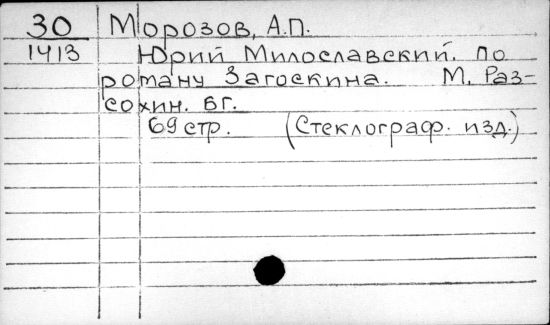 30 Морозов, А.П.
1413 Юрий Милославский. По
роману Загоскина. М. Раз-
сохин. Бг.
69 стр. (Стеклограф. изд.)